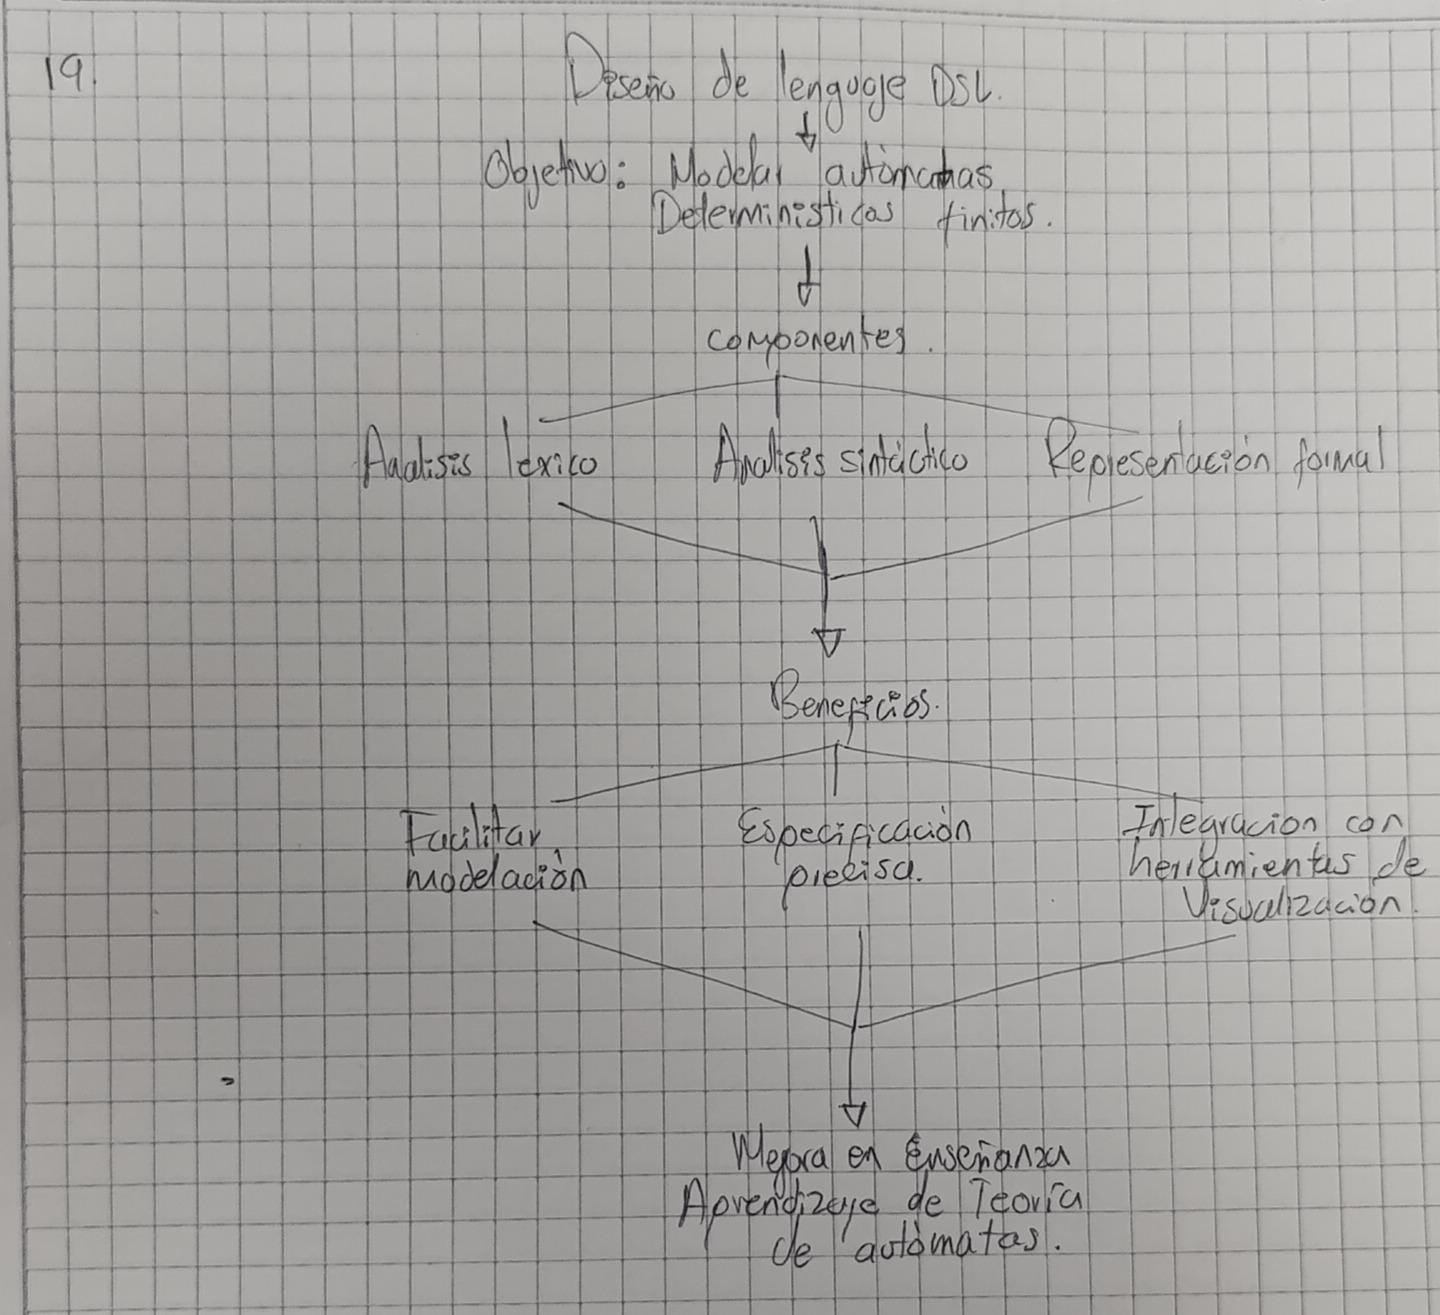 19.
Diseño de lenguaje DSL.
Objetivo: Modelar autómatas
Deterministicos finitos.
componentes.
Analisis léxico Analisis sintáctico Representación formal
Beneficios.
Facilitar Especificación Integracion con
modelación precisa. herramientas de
Visualización.
Mejora en Enseñanza
Aprendizaje de Teoría
de autómatas.